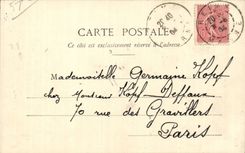 CARTE POSTALE
Ce côté est exclusivement réservé à l'adresse
Mademoiselle Germaine Kopf
chez Monsieur Kopf-Deffaux
70 rue des Gravilliers
Paris